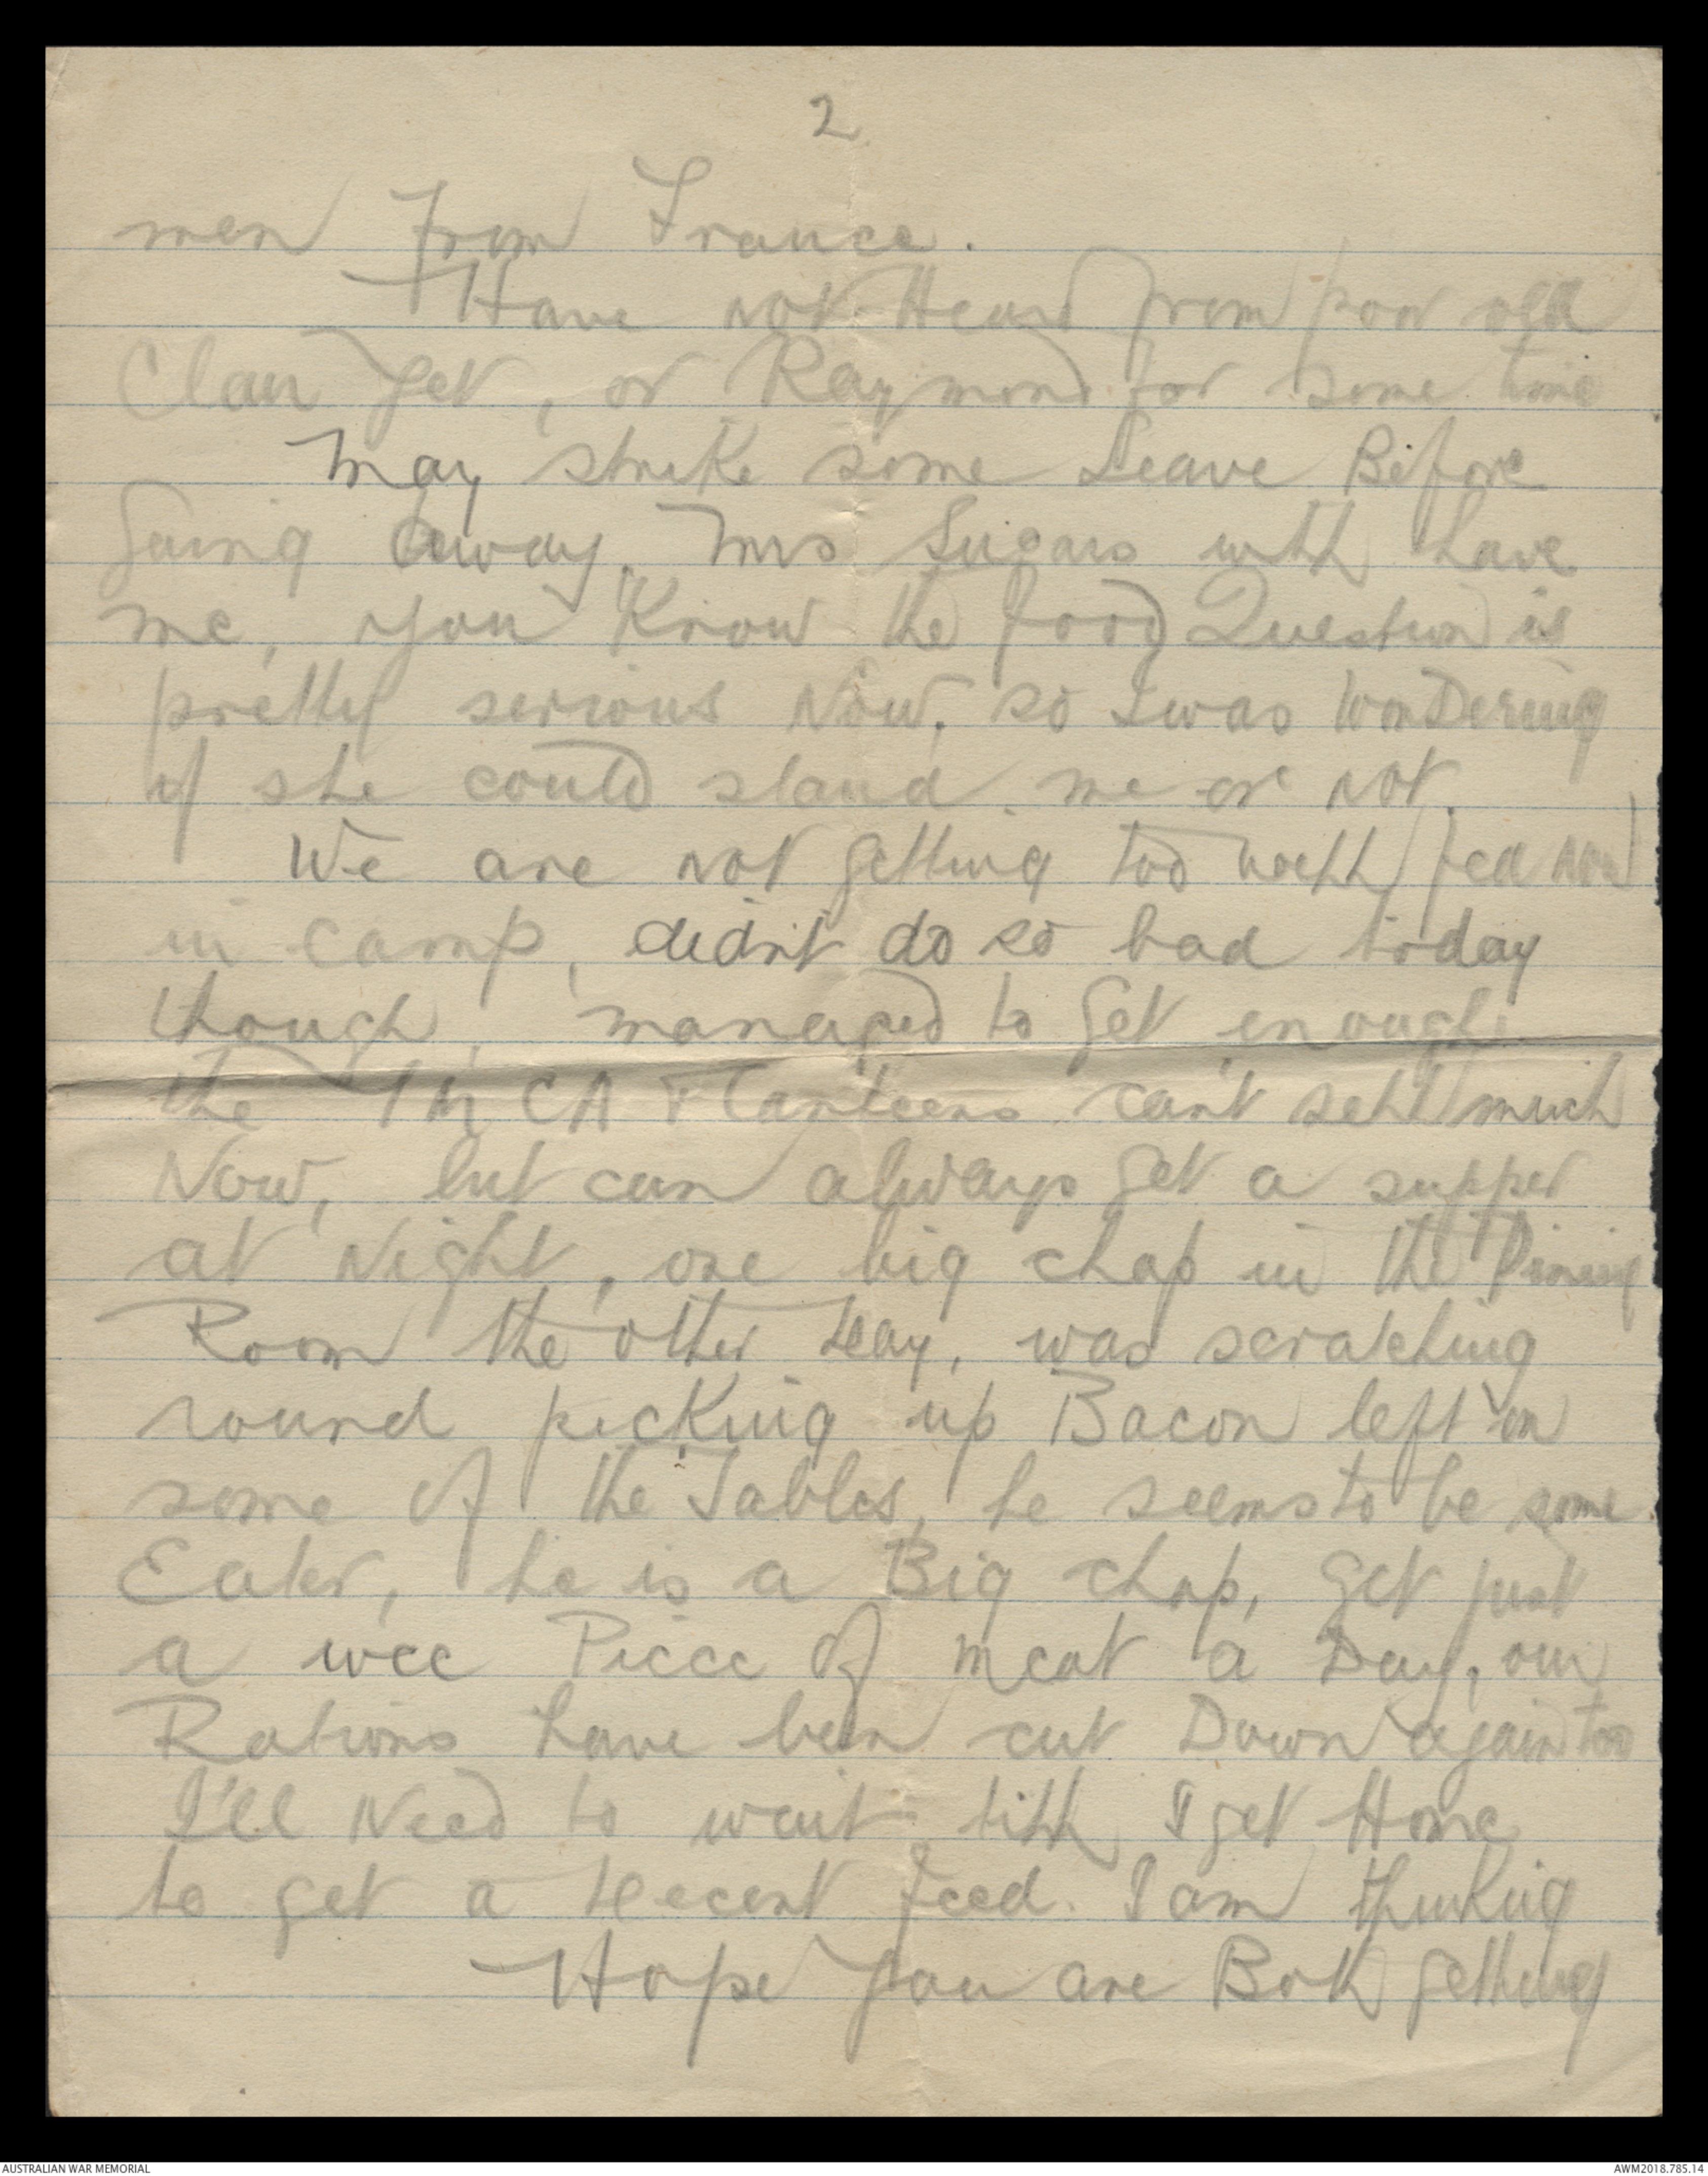 2
men From France.
Have not Heard from poor old
Clan yet, or Raymond for some time
May strike some Leave Before
Going Away. Mrs Sugars will have
me, you Know the food Question is
pretty serious Now, so I was WonDering
if she could stand me or not.
We are not getting too well fed now
in camp, didn't do so bad today
though, managed to get enough
the YMCA & Canteens can't sell much
Now, but can always get a supper
at Night, one big chap in the Dining
Room the other Day, was scratching
round picking up Bacon left on
some of the Tables, he seems to be some
Eater, he is a Big chap, get just
a wee Piece of meat a Day, our
Rations have been cut Down again too
I'll Need to wait till I get Home
to get a Decent feed. I am thinking
Hope you are Both getting
AUSTRALIAN WAR MEMORIAL
AWM2018.785.14